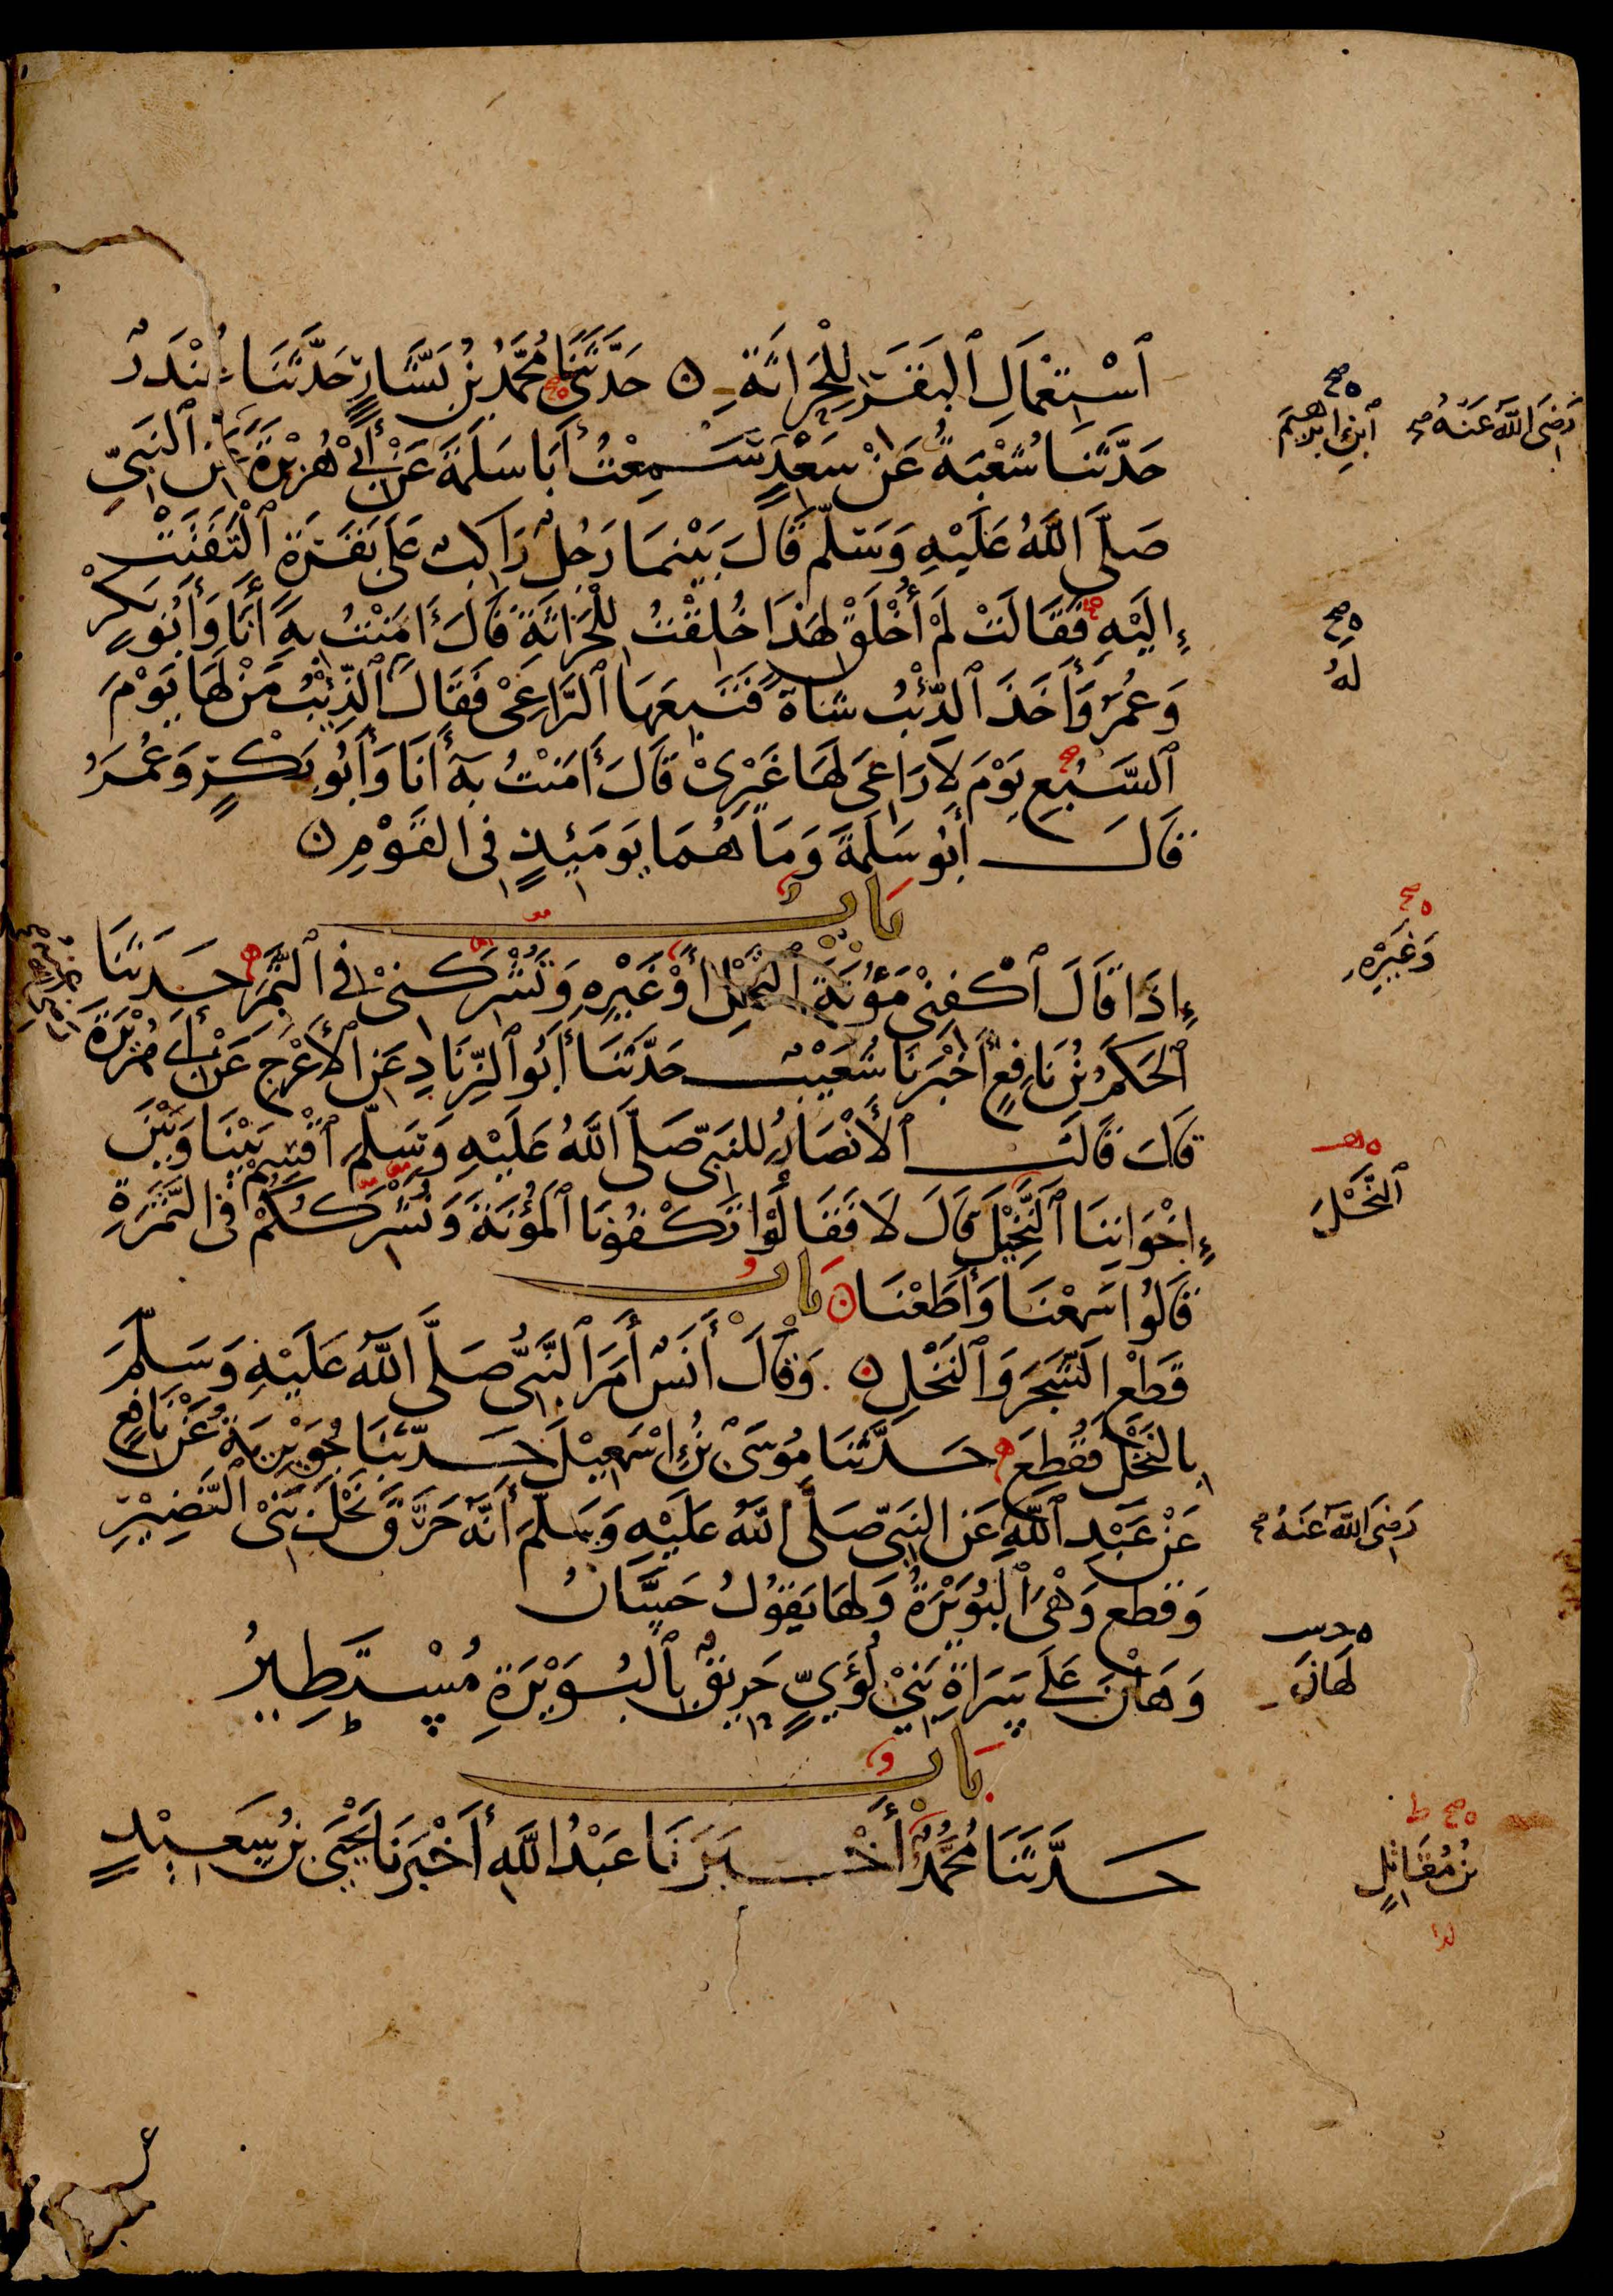 ٱسْتِعْمَالِ ٱلبَقَرِ لِلْحِرَاثَةِ ۞ حَدَّثَنَا مُحَمَّدُ بْنُ بَشَّارٍ حَدَّثَنَا غُنْدَرٌ
حَدَّثَنَا شُعْبَةُ عَنْ سَعْدٍ سَمِعْتُ أَبَا سَلَمَةَ عَنْ أَبِي هُرَيْرَةَ عَنِ ٱلنَّبِيِّ
صَلَّى اللَّهُ عَلَيْهِ وَسَلَّمَ قَالَ بَيْنَمَا رَجُلٌ رَاكِبٌ عَلَى بَقَرَةٍ ٱلْتَفَتَتْ
إِلَيْهِ فَقَالَتْ لَمْ أُخْلَقْ لِهَذَا خُلِقْتُ لِلْحِرَاثَةِ قَالَ ءَامَنْتُ بِهِ أَنَا وَأَبُو بَكْرٍ
وَعُمَرُ وَأَخَذَ ٱلذِّئْبُ شَاةً فَتَبِعَهَا ٱلرَّاعِي فَقَالَ ٱلذِّئْبُ مَنْ لَهَا يَوْمَ
ٱلسَّبُعِ يَوْمَ لَا رَاعِيَ لَهَا غَيْرِي قَالَ ءَامَنْتُ بِهِ أَنَا وَأَبُو بَكْرٍ وَعُمَرُ
قَالَ أَبُو سَلَمَةَ وَمَا هُمَا يَوْمَئِذٍ فِي القَوْمِ ۞
بَابٌ
إِذَا قَالَ ٱكْفِنِي مَؤُنَةَ ٱلنَّخْلِ أَوْ غَيْرِهِ وَتُشْرِكُنِي فِي ٱلثَّمَرِ حَدَّثَنَا
ٱلحَكَمُ بْنُ نَافِعٍ أَخْبَرَنَا شُعَيْبٌ حَدَّثَنَا أَبُو ٱلزِّنَادِ عَنِ ٱلأَعْرَجِ عَنْ أَبِي هُرَيْرَةَ
قَالَ قَالَتِ ٱلأَنْصَارُ لِلنَّبِيِّ صَلَّى اللَّهُ عَلَيْهِ وَسَلَّمَ ٱقْسِمْ بَيْنَنَا وَبَيْنَ
إِخْوَانِنَا ٱلنَّخِيلَ قَالَ لَا فَقَالُوا تَكْفُونَا ٱلمَؤُنَةَ وَنُشْرِكُكُمْ فِي الثَّمَرَةِ
قَالُوا سَمِعْنَا وَأَطَعْنَا ۞ بَابُ
قَطْعِ الشَّجَرِ وَٱلنَّخْلِ ۞ وَقَالَ أَنَسٌ أَمَرَ ٱلنَّبِيُّ صَلَّى اللَّهُ عَلَيْهِ وَسَلَّمَ
بِالنَّخْلِ فَقُطِعَ حَدَّثَنَا مُوسَى بْنُ إِسْمَعِيلَ حَدَّثَنَا جُوَيْرِيَةُ عَنْ نَافِعٍ
عَنْ عَبْدِ ٱللَّهِ عَنِ النَّبِيِّ صَلَّى اللَّهُ عَلَيْهِ وَسَلَّمَ أَنَّهُ حَرَّقَ نَخْلَ بَنِي ٱلنَّضِيرِ
وَقَطَعَ وَهْيَ ٱلبُوَيْرَةُ وَلَهَا يَقُولُ حَسَّانُ
وَهَانَ عَلَى سَرَاةِ بَنِي لُؤَيٍّ حَرِيقٌ بِٱلبُوَيْرَةِ مُسْتَطِيرُ
بَابٌ
حَدَّثَنَا مُحَمَّدٌ أَخْبَرَنَا عَبْدُ اللَّهِ أَخْبَرَنَا يَحْيَى بْنُ سَعِيدٍ
رَضِيَ اللَّهُ عَنْهُ صح
ٱبْنِ إِبْرَاهِيمَ
لَهُ
وَغَيْرِهِ
ٱلنَّخْلَ
رَضِيَ اللَّهُ عَنْهُ صح
لَهَانَ
بْنُ مُقَاتِلٍ